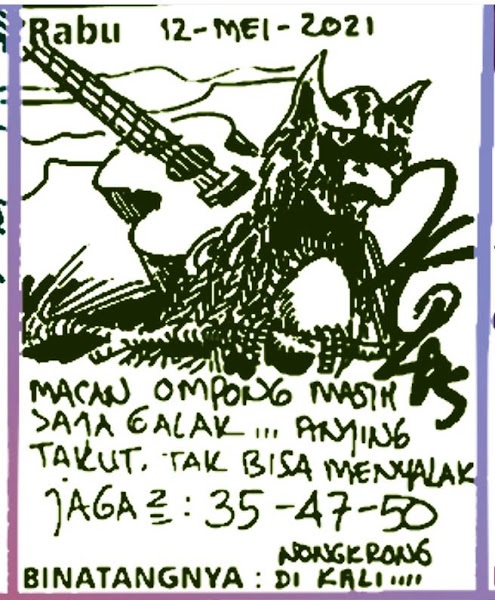 Rabu 12-MEI-2021
MACAN OMPONG MASIH
SAJA GALAK ... ANJING
TAKUT. TAK BISA MENYALAK
JAGA2 : 35-47-50
NONGKRONG
BINATANGNYA : DI KALI....